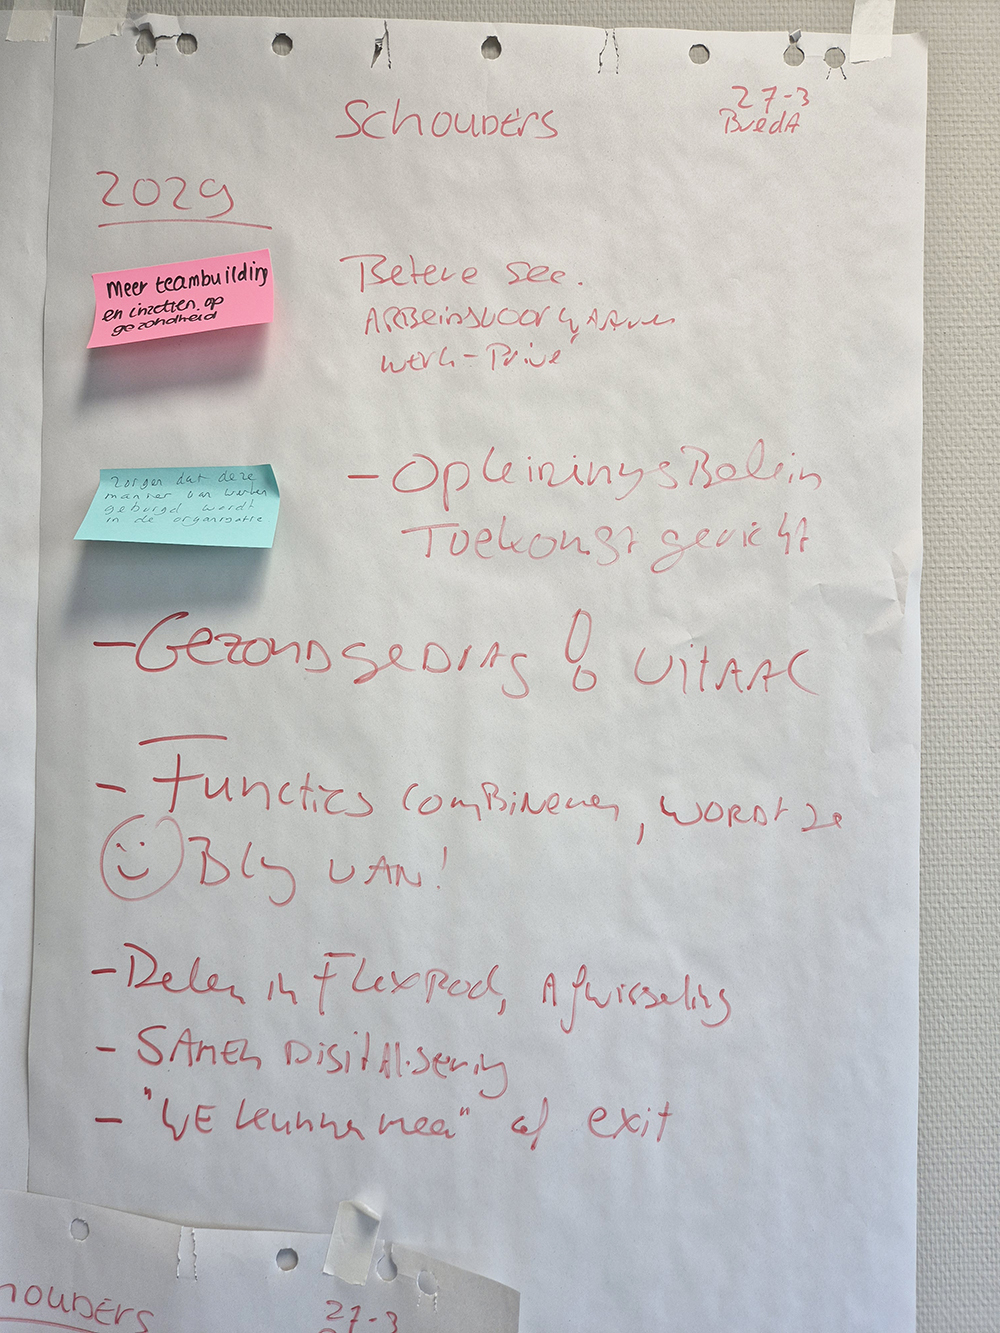 Schouders
27-3
Breda
2029
Meer teambuilding
en inzetten op
gezondheid
Betere sec.
Arbeidsvoorwaarden
werk-Privé
Zorgen dat deze
manier van werken
geborgd wordt
in de organisatie
- OpleiningsBelein
Toekomst gericht
- Gezond gedrag & Vitaal
- Functies combineren, wordt ze
Bly van!
- Delen in Flexpool, Afwisseling
- Samen Digitalisering
- "We kunnen mee" of exit
houders
27-3